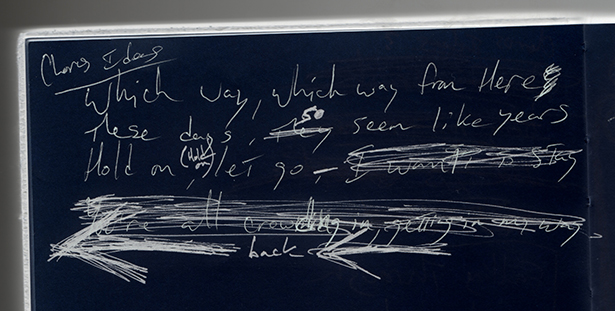 Chorus Ideas
Which way, which way from Here
so
These days, they seem like years
Hold on, (Hold on) let go – I want to stay
all crowding in, getting in my way
back